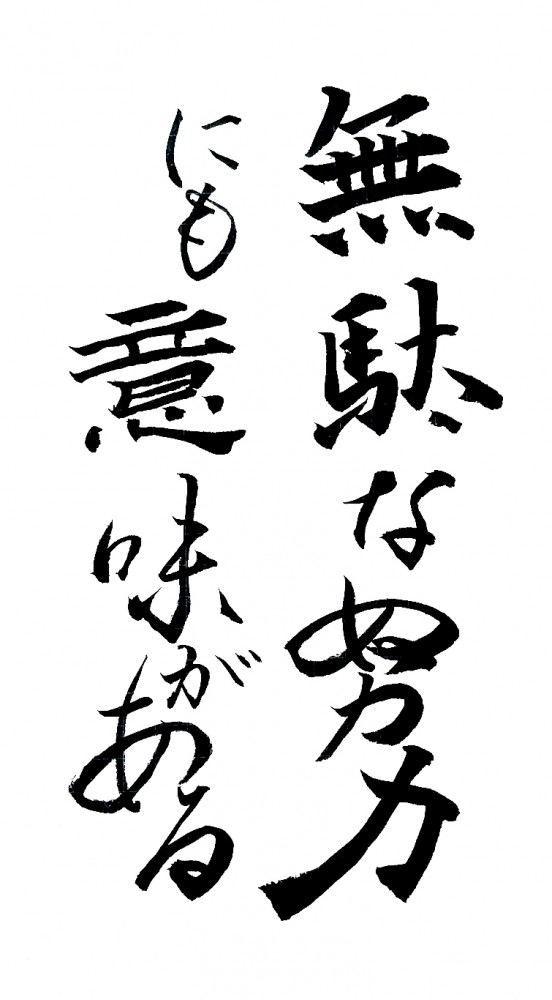 無駄な努力
にも意味がある